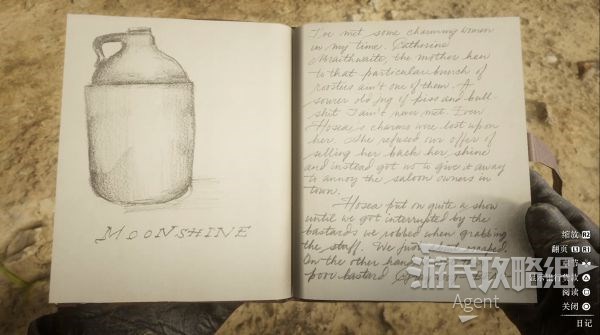 MOONSHINE
I've met some charming women
in my time. Catherine
Braithwaite, the mother hen
to that particular bunch of
roosters ain't one of them. A
sourer old jug of piss and bull-
shit I ain't never met. Even
Hosea's charms were lost upon
her. She refused our offer of
selling her back her shine
and instead got us to give it away
to annoy the saloon owners in
town.
Hosea put on quite a show
until we got interrupted by the
bastards we robbed when grabbing
the stuff. We
On the other hand
poor bastard
游民攻略组
Agent
缩放 R2
翻页 L1 R1
阅读
关闭
日记